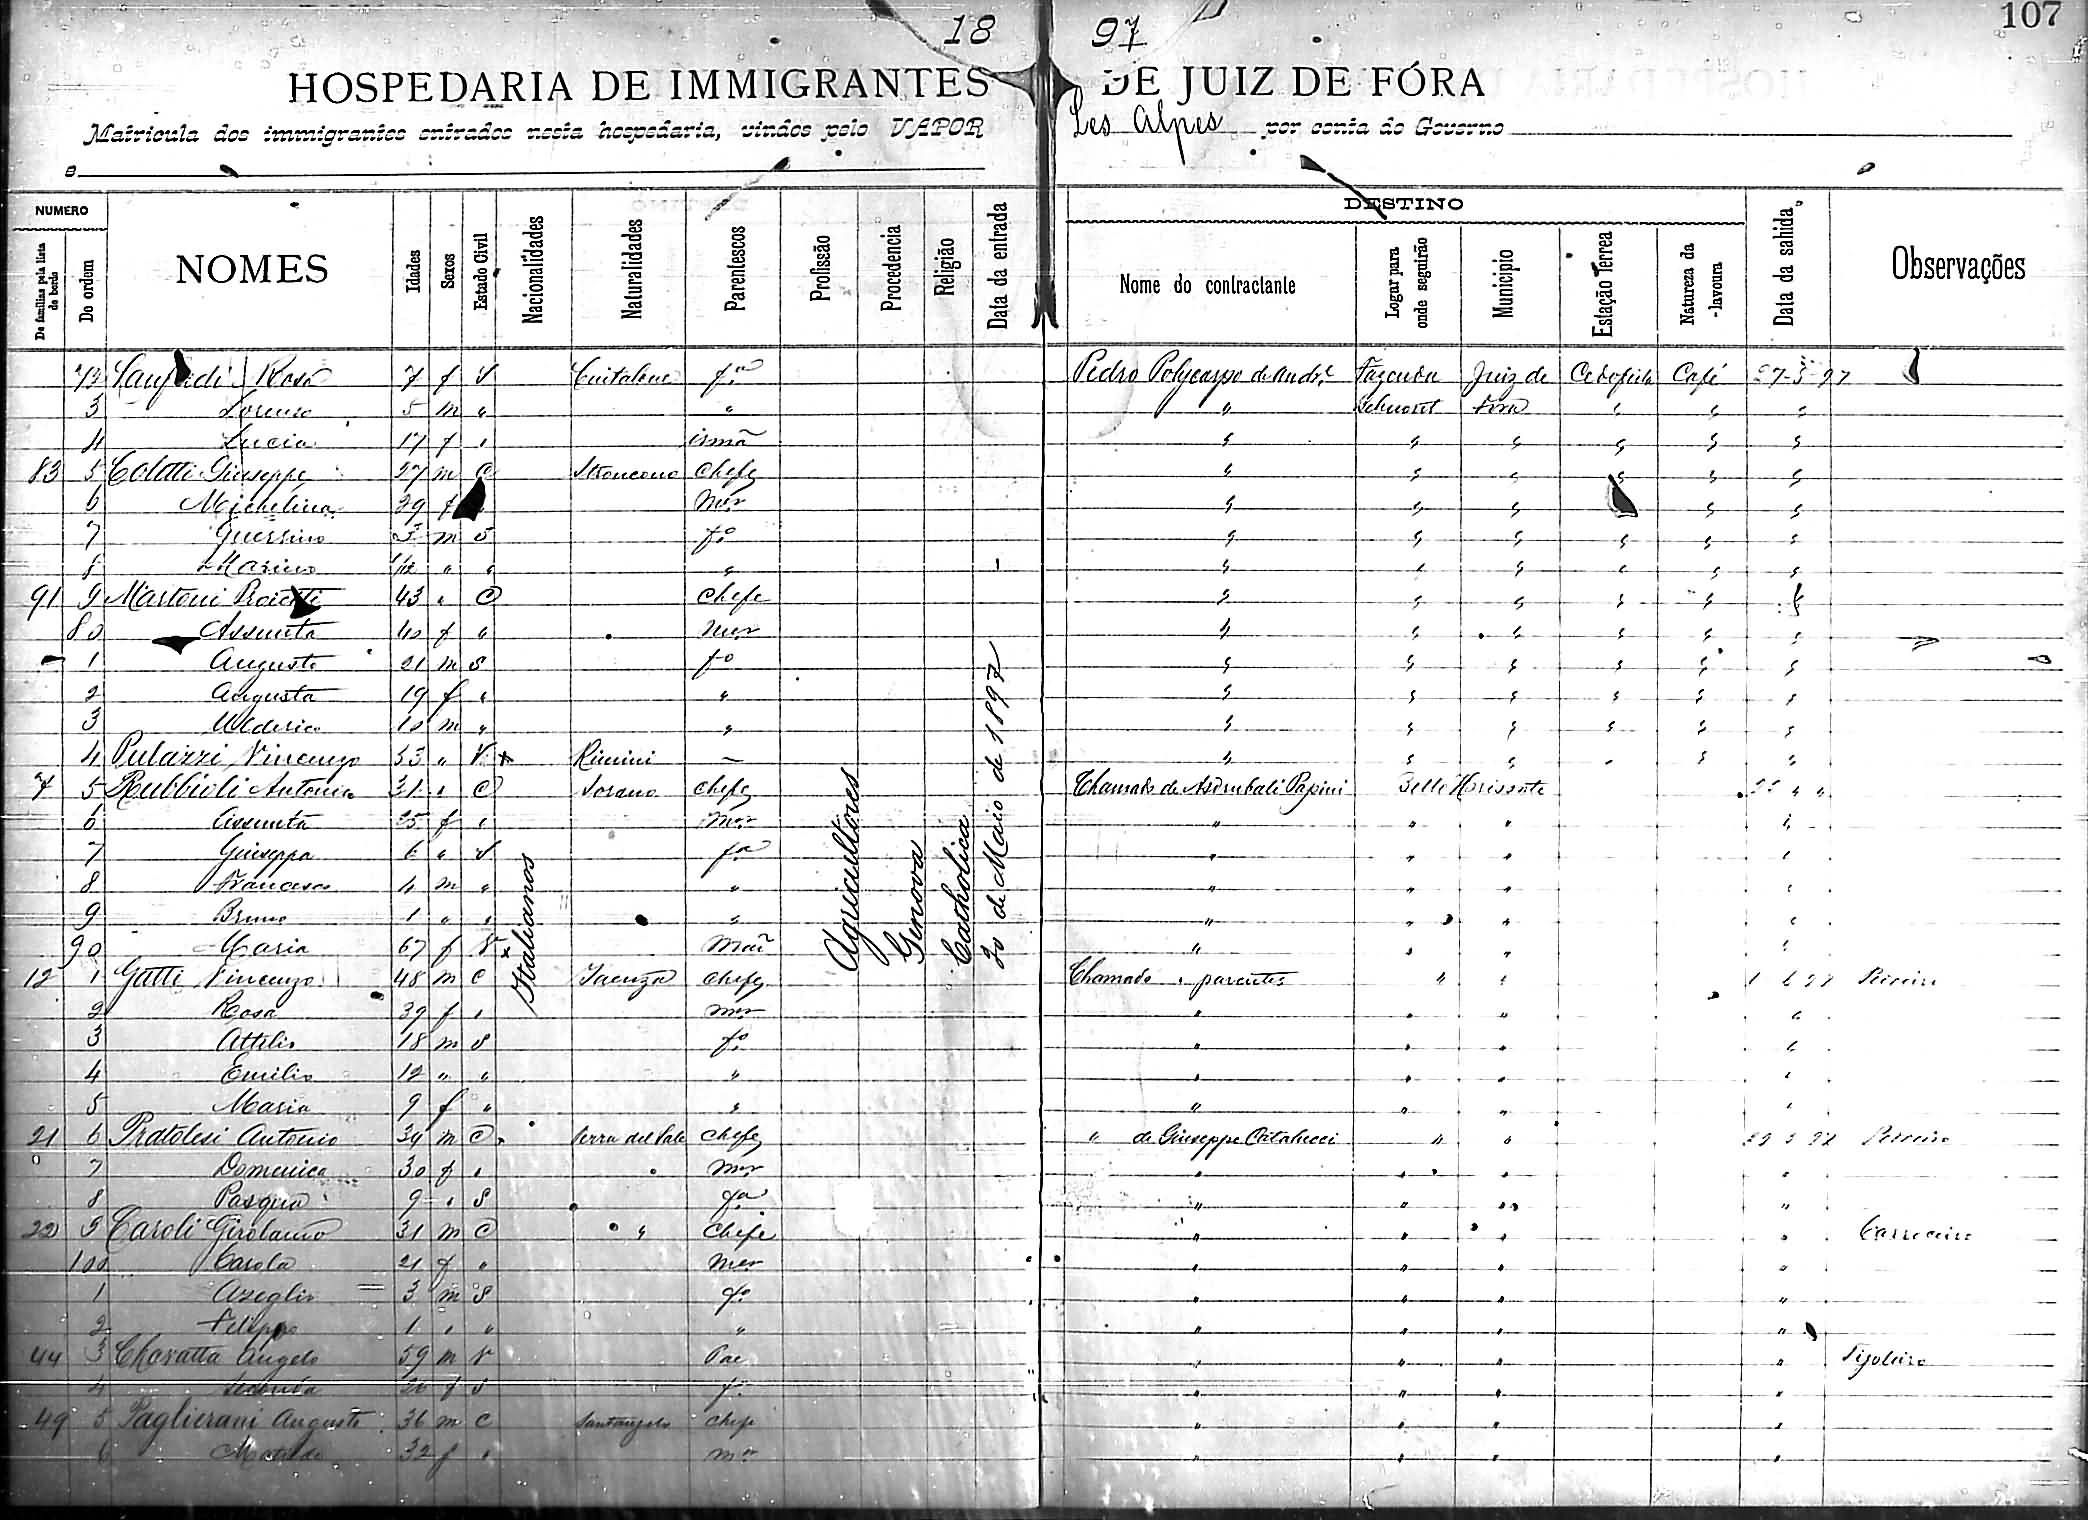 107
18 97
HOSPEDARIA DE IMMIGRANTES DE JUIZ DE FÓRA
Matricula dos immigrantes entrados nesta hospedaria, vindos pelo VAPOR Les Alpes por conta do Governo
e
NUMERO DESTINO
De familias pela lista de bordo Do ordem NOMES Idades Sexos Estado Civil Nacionalidades Naturalidades Parentescos Profissão Procedencia Religião Data da entrada Nome do contractante Logar para onde seguirão Municipio Estação Terrea Natureza da lavoura Data da sahida Observações
Italianos Agricultores Genova Catholica 20 de Maio de 1897
73 Rosa 7 f S fa Pedro Polycarpo de Andre Fazenda Juiz de Café 27-5-97
3 Lorenzo 5 m " " " Fora " " "
4 Lucia 17 f " irmã " " " " " "
83 5 Colatti Giuseppe 27 m C Stroncono Chefe " " " " " "
6 Michelina 29 f mer " " " " "
7 Guerrino 3 m S fo " " " " " "
8 Marino " " " " " " " " "
91 9 Martoni 43 " C Chefe " " " " " "
80 Assunta 40 f " mer " " " " " "
1 Augusto 21 m S fo " " " " " "
2 Augusta 19 f " " " " " " " "
3 Ulderico 10 m " " " " " " " "
4 Pulazzi Vincenzo 53 " V x Rimini — " " " " "
7 5 Rubbioli Antonio 31 " C Sorano Chefe Chamado de Asdrubali Papini Bello Horisonte 22 " "
6 Assunta 25 f " mer " " " "
7 Giuseppa 6 " S fa " " " "
8 Francesco 4 m " " " " " "
9 Bruno 1 " " " " " " "
90 Maria 67 f V x Mãi " " " "
12 1 Gatti Vincenzo 48 m C Faenza Chefe Chamado " parentes " " 1 6 97
2 Rosa 39 f " mer " " " "
3 Attilio 18 m S fo " " " "
4 Emilio 12 " " " " " " "
5 Maria 9 f " " " " " "
21 6 Pratolesi Antonio 39 m C Chefe " de Giuseppe " "
7 Domenica 30 f " mer " " " "
8 Pasqua 9 " S fa " " " "
22 9 Caroli Girolamo 31 m C " Chefe " " " " Carroceiro
100 Carola 21 f " mer " " " "
1 Azeglio 3 m S fo " " " "
2 Felippo 1 " " " " " " "
44 3 Angelo 59 m V Pae " " " " Tijoleiro
4 Seconda 20 f S fa " " " "
49 5 Paglierani Augusto 36 m C Santangelo Chefe " " " "
6 Matilde 32 f " mer " " " "